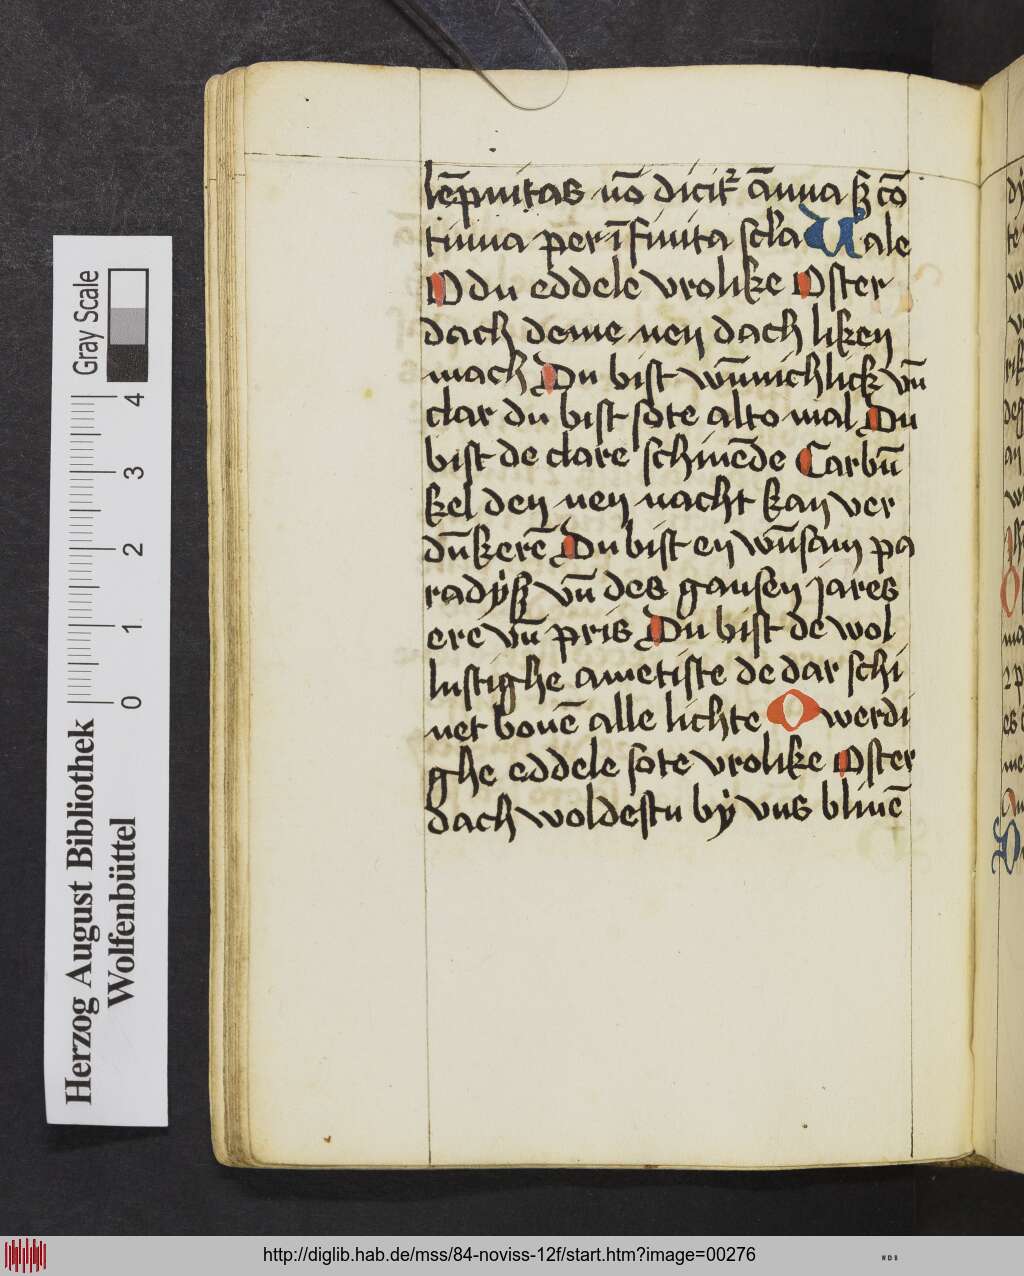 lēpnitas nō dicitꝛ ānua sꝫ cō
tinua per īfinita scła Uale
O du eddele vrolike Oster
dach deme nen dach liken
mach Du bist wūnichlick vn̄
clar du bist sote alto mal Du
bist de clare schinēde Carbū
kel den nen nacht kan ver
dūkerē Du bist en wūsam pa
radÿß vn̄ des gansen jares
ere vn̄ pris Du bist de wol
lustighe ametiste de dar schi
net bouē alle lichte O werdi
ghe eddele sote vrolike Oster
dach woldestu bÿ vns bliuē
Gray Scale
4
3
2
1
0
Herzog August Bibliothek
Wolfenbüttel
http://diglib.hab.de/mss/84-noviss-12f/start.htm?image=00276